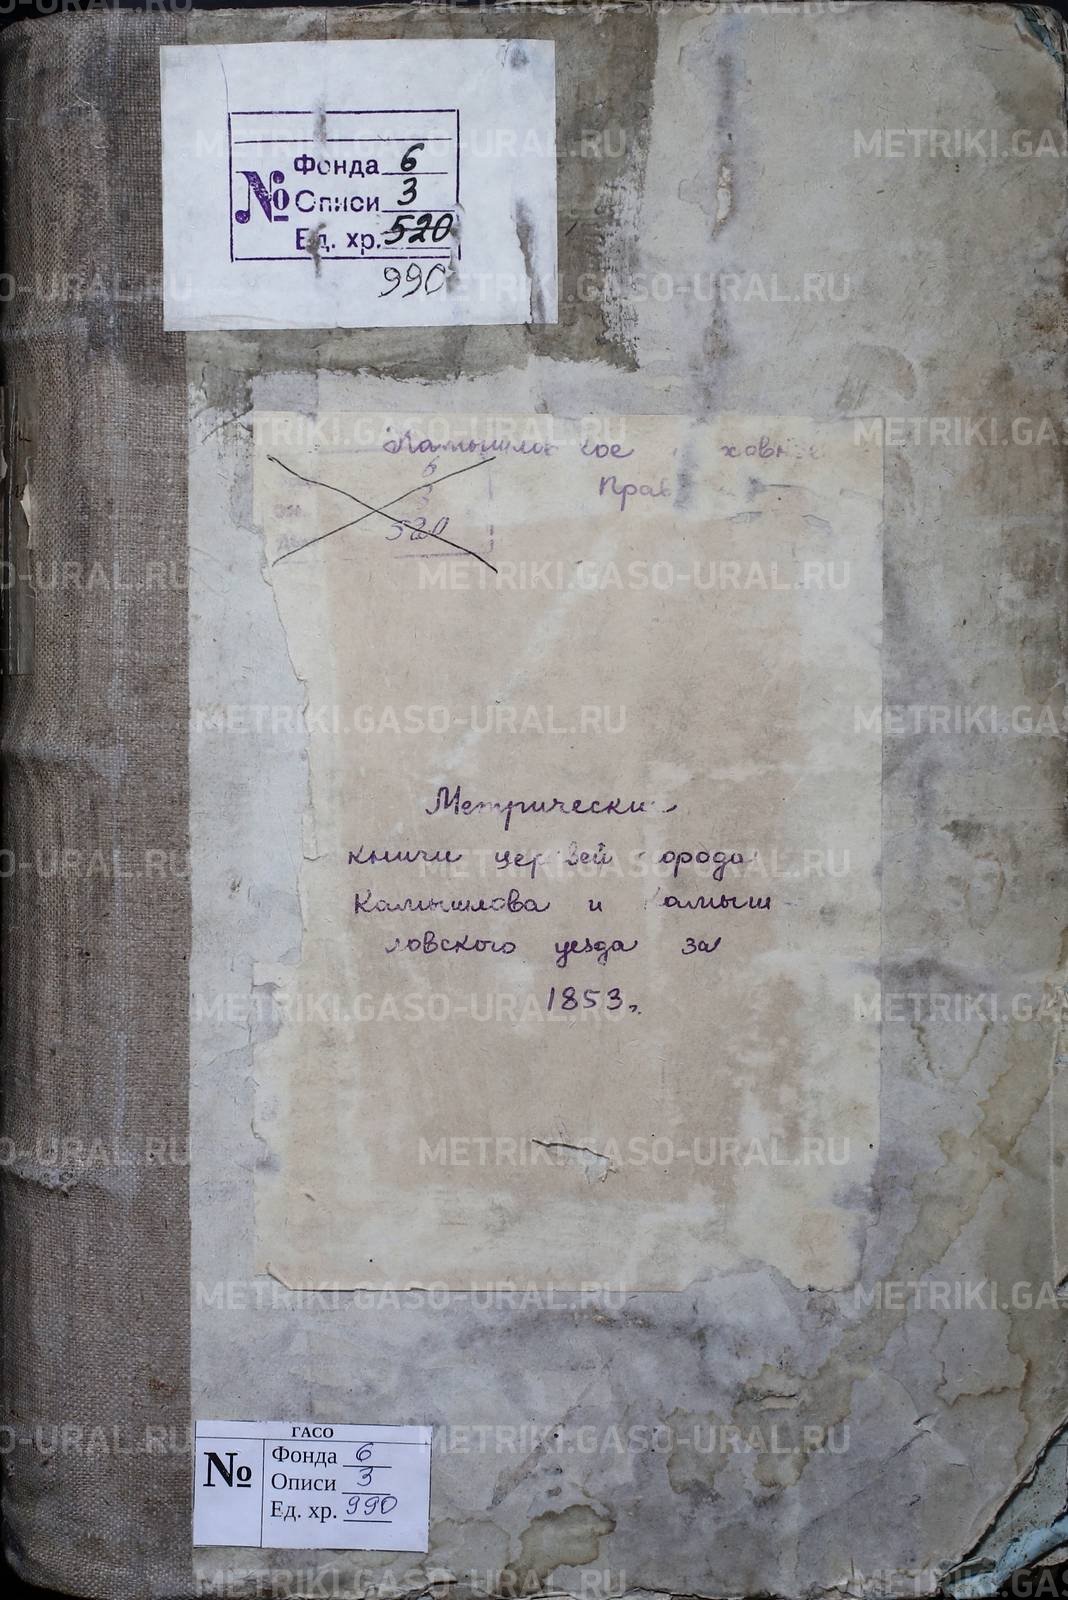 № Фонда 6
Описи 3
Ед. хр. 520
990
6
3
520
Метрически
книги церквей города
Камышлова и Камыш
ловского уезда за
1853 г.
ГАСО
№ Фонда 6
Описи 3
Ед. хр. 990
METRIKI.GASO-URAL.RU